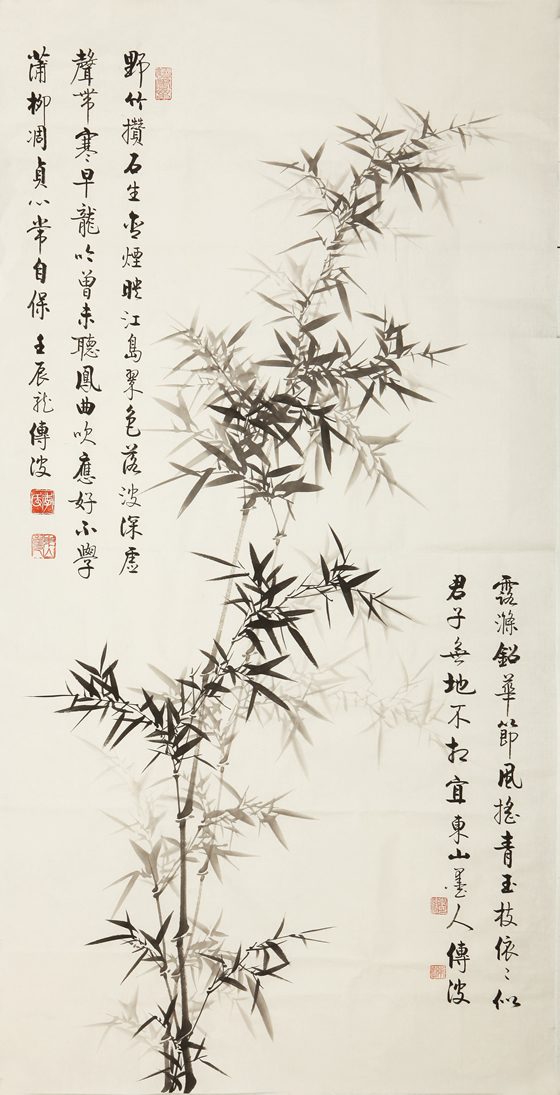 野竹攢石生含煙映江島翠色落波深虛
聲帶寒早龍吟曾未聽鳳曲吹應好不學
蒲柳凋貞心常自保壬辰龍傳波
露滌鉛華節風搖青玉枝依〻似
君子無地不相宜東山墨人傳波